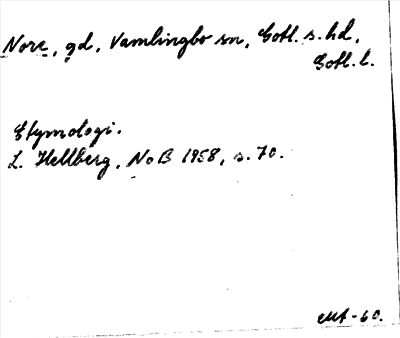 Nore, gd, Vamlingbo sn, Gotl. s. hd,
Gotl. l.
Etymologi.
L. Hellberg, NoB 1958, s. 70.
MA-60.